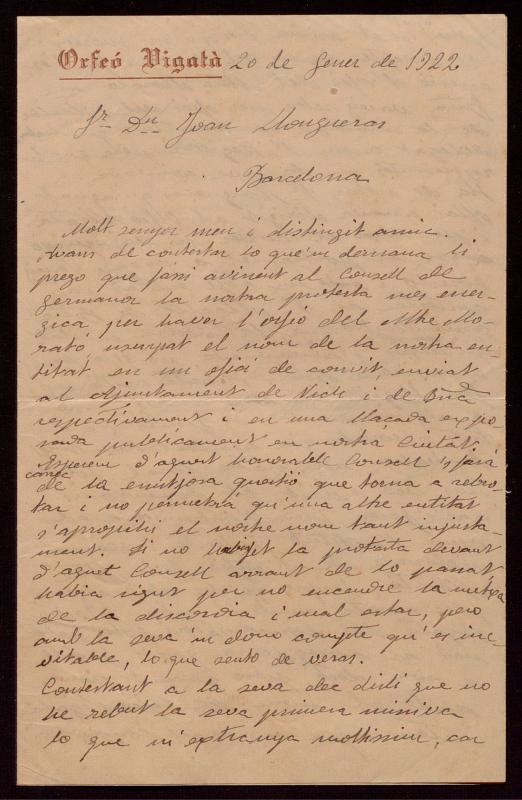 Orfeó Vigatà 20 de Gener de 1922
Sr. Dn Joan Llongueras
Barcelona
Molt senyor meu i distingit amic.
Avans de contestar lo que'm demana li
prego que fassi avinent al Consell de
germanor la nostra protesta mes ener-
gica, per haver l'orfeó del Mtre Mo-
rató, usurpat el nom de la nostra en-
titat en un ofici de convit enviat
al Ajuntament de Vich i de
respectivament i en una llaçada expo-
sada publicament en nostra Ciutat.
Esperem d'aquest honorable Consell 's farà
carrec
de la enutjosa questió que torna a rebro-
tar i no permetrà qu'una altre entitat
s'apropihi el nostre nom tant injusta-
ment. Si no la protesta devant
d'aquet Consell arrant de lo passat
habia sigut per no encendre la metxa
de la discordia i mal estar, pero
amb la seva 'm dono compte qu'es ine-
vitable, lo que sento de veras.
Contestant a la seva dec dirli que no
he rebut la seva primera missiva
lo que m'extranya moltissim, car